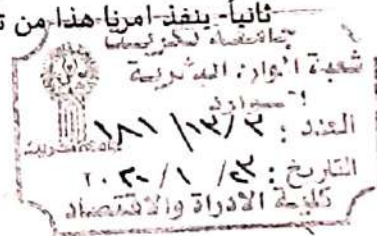 ثانياً- ينفذ امرنا هذا من
جامعة تكريت
شعبة الموارد البشرية
العدد : ٣/١٣/ ١٨١
التاريخ : / ١ /
كلية الادارة والاقتصاد